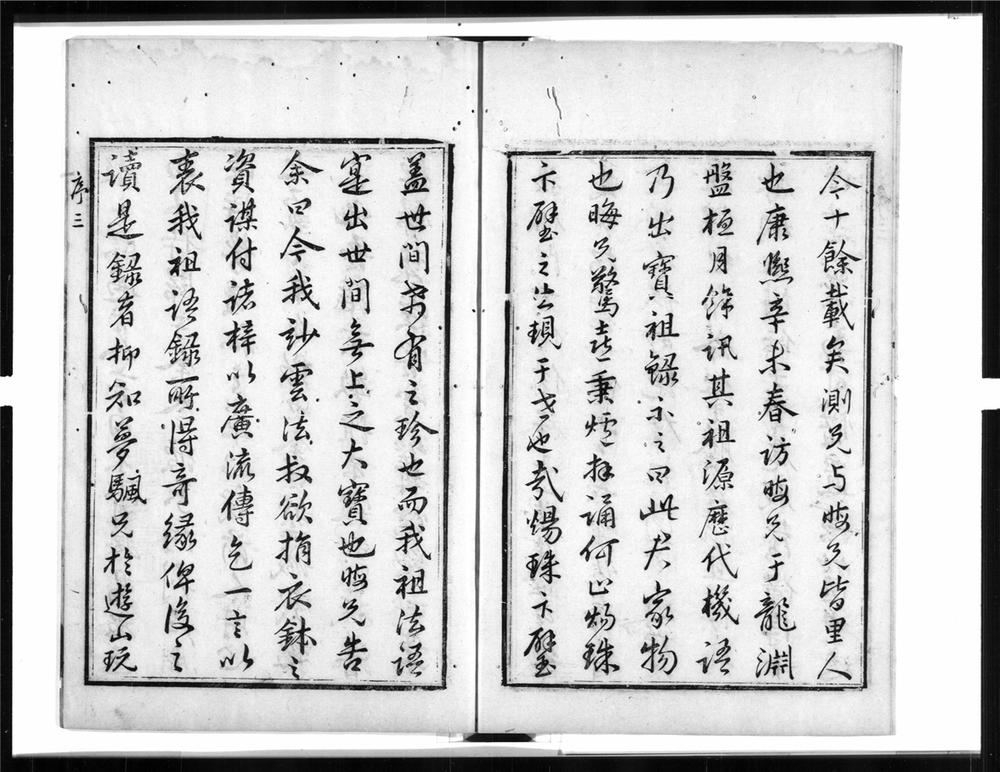 今十餘載矣測兄与晦兄皆里人
也康熙辛未春訪晦兄于龍淵
盤桓月餘訊其祖源歷代機語
乃出寶祖錄示之曰此吾家物
也晦兄驚喜秉爐拜誦何止煬珠
卞璧之出現于世也哉煬珠卞璧
蓋世間希有之珍也而我祖法語
寔出世間無上之大寶也晦兄告
余曰今我訟雲法叔欲捐衣鉢之
資謀付諸梓以廣流傳乞一言以
表我祖語錄所得奇緣俾後之
讀是錄者抑知夢颿兄於遊山玩
序三